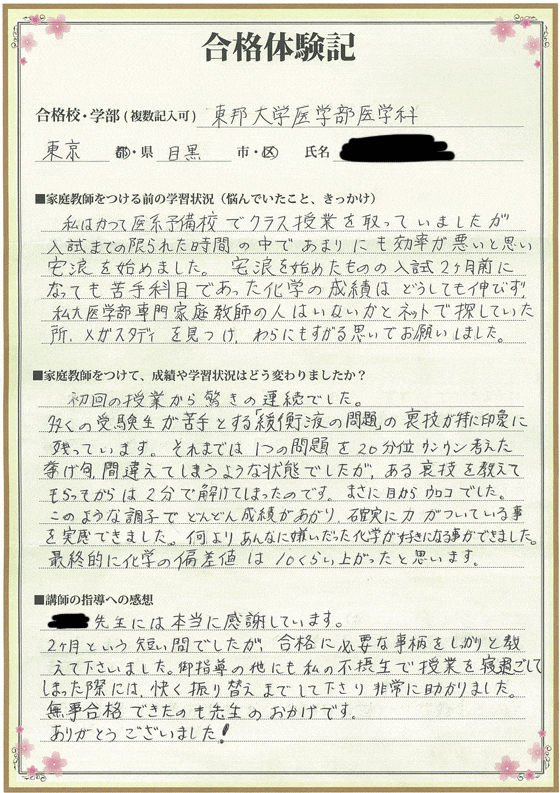 合格体験記
合格校・学部(複数記入可) 東邦大学医学部医学科
東京 都・県 目黒 市・区 氏名
■家庭教師をつける前の学習状況(悩んでいたこと、きっかけ)
私はかつて医系予備校でクラス授業を取っていましたが
入試までの限られた時間の中であまりにも効率が悪いと思い
宅浪を始めました。宅浪を始めたものの入試2ヶ月前に
なっても苦手科目であった化学の成績はどうしても伸びず、
私大医学部専門家庭教師の人はいないかとネットで探していた
所、メガスタディを見つけ、わらにもすがる思いでお願いしました。
■家庭教師をつけて、成績や学習状況はどう変わりましたか?
初回の授業から驚きの連続でした。
多くの受験生が苦手とする「緩衝液の問題」の裏技が特に印象に
残っています。それまでは1つの問題を20分位ウンウン考えた
挙げ句、間違えてしまうような状態でしたが、ある裏技を教えて
もらってからは2分で解けてしまったのです。まさに目からウロコでした。
このような調子でどんどん成績があがり、確実に力がついている事
を実感できました。何よりあんなに嫌いだった化学が好きになる事ができました。
最終的に化学の偏差値は10くらい上がったと思います。
■講師の指導への感想
先生には本当に感謝しています。
2ヶ月という短い間でしたが、合格に必要な事柄をしっかりと教
えて下さいました。御指導の他にも私の不摂生で授業を寝過ごして
しまった際には、快く振り替えまでして下さり非常に助かりました。
無事合格できたのも先生のおかげです。
ありがとうございました!